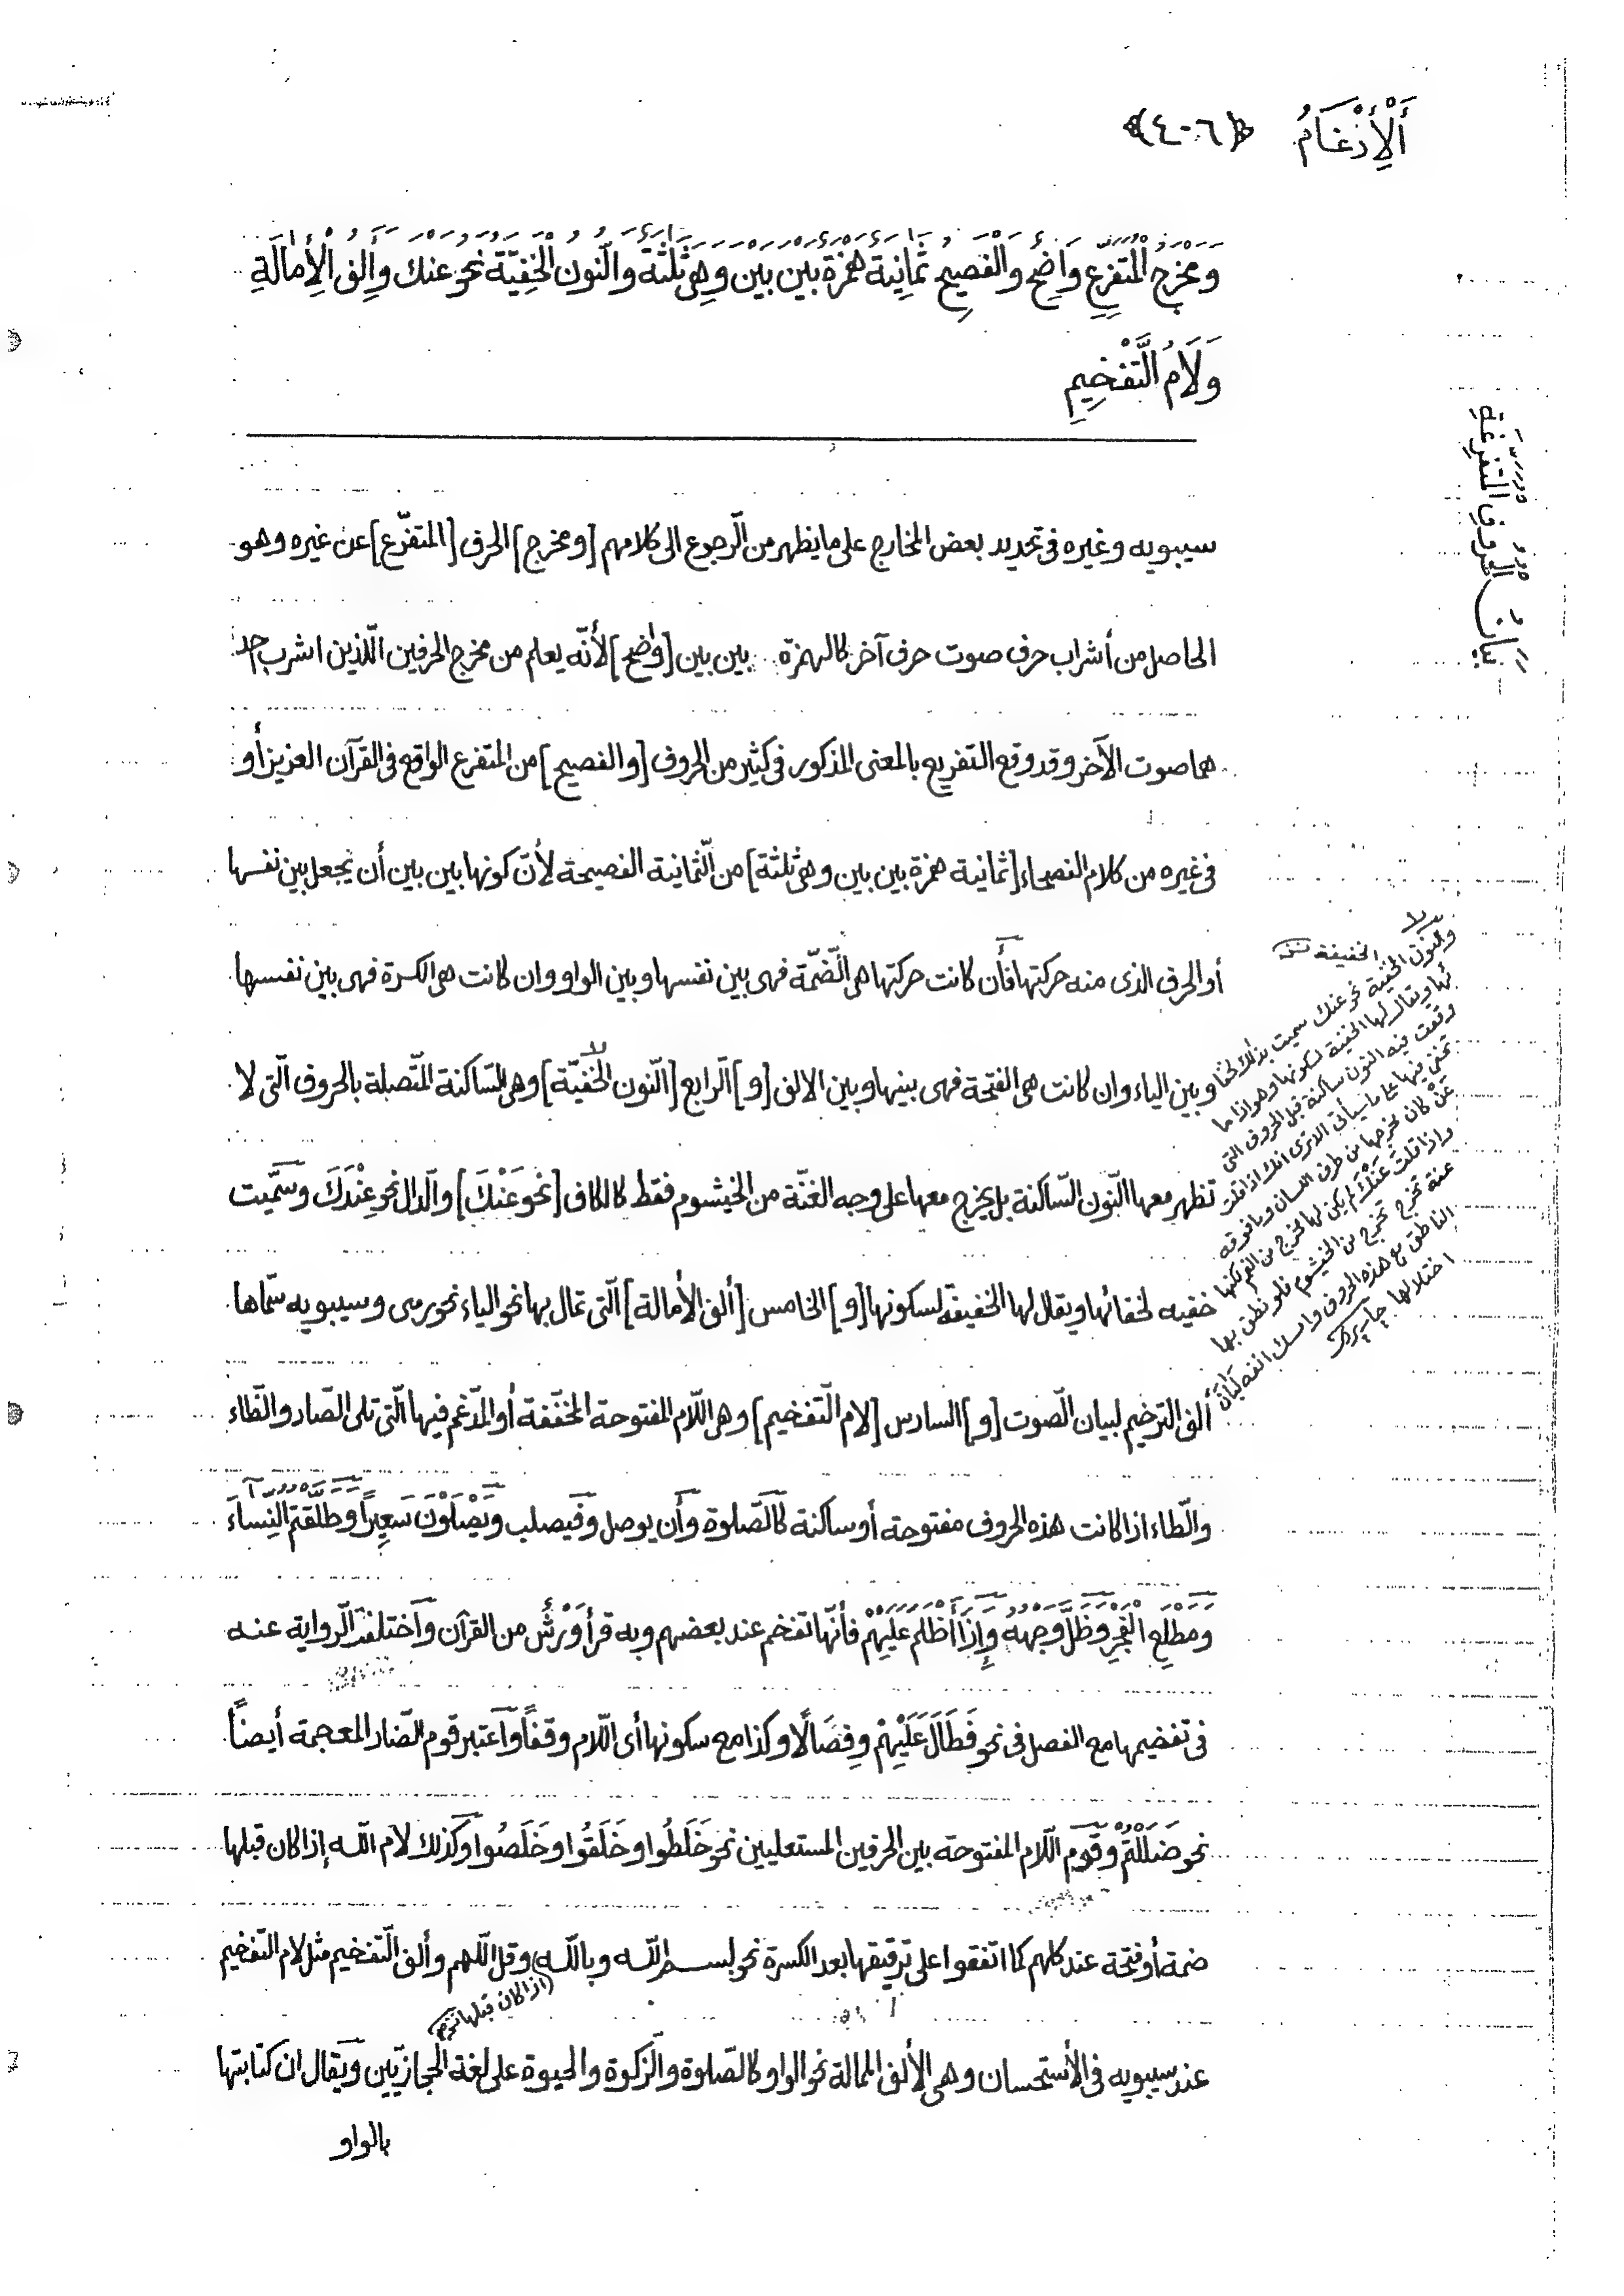 أَلْإِدْغَامُ ﴿٤٠٦﴾
وَمَخْرَجُ الْمُتَفَرِّعِ وَاضِحٌ وَالْفَصِيحُ ثَمَانِيَةٌ هَمْزَةُ بَيْنَ بَيْنَ وَهِيَ ثَلَثَةٌ وَالنُّونُ الْخَفِيَّةُ نَحْوُ عَنْكَ وَأَلِفُ الْإِمَالَةِ
وَلَامُ التَّفْخِيمِ
بَيَانُ الْحُرُوفِ الْمُتَفَرِّعَةِ
سيبويه وغيره فى تحديد بعض المخارج على ما يظهر من الّرجوع الى كلامهم [ومخرج] الحرف [المتفرّع] عن غيره وهو
الحاصل من أشراب حرف صوت حرف آخر كالهمزة بين بين [واضح] لأنّه يعلم من مخرج الحرفين الّلذين اشرب احد
هما صوت الآخر وقد وقع التفريع بالمعنى المذكور فى كثير من الحروف [والفصيح] من المتفرع الواقع فى القرآن العزيز أو
فى غيره من كلام الفصحاء [ثمانية همزة بين بين وهى ثلثة] من الّثمانية الفصيحة لأنّ كونها بين بين أن يجعل بين نفسها
أو الحرف الذى منه حركتها فأن كانت حركتها هى الّضمّة فهى بين نفسها وبين الواو وان كانت هى الكسرة فهى بين نفسها
وبين الياء وان كانت هى الفتحة فهى بينها وبين الالف [و] الّرابع [الّنون الخفيّة] وهى الّساكنة المتّصلة بالحروف الّتى لا
تظهر معها الّنون الّساكنة بل يخرج معها على وجه الغنّة من الخيشوم فقط كالكاف [نحو عَنْكَ] والّدال نحو عِنْدَكَ وسمّيت
خفيه لخفائها ويقال لها الخفيفة لسكونها [و] الخامس [ألف الأمالة] الّتى تمال بها نحو الياء نحو رمى وسيبويه سمّاها
ألف الترخيم لبيان الّصوت [و] السادس [لام الّتفخيم] وهى اللّام المفتوحة المخفّفة أو المدّغم فيها الّتى تلى الصّاد والظّاء
والّطاء اذا كانت هذه الحروف مفتوحة أو ساكنة كالّصلوة وأن يوصل وفيصلب وَيَصْلَوْنَ سَعِيرًا وَطَلَّقْتُمُ النِّسَاءَ
وَمَطْلَعِ الْفَجْرِ وَظَلَّ وَجْهُهُ وَإِذَا أَظْلَمَ عَلَيْهِمْ فأنّها تفخم عند بعضهم وبه قرأ وَرْشٌ من القرآن وأختلفت الّرواية عنه
فى تفخيمها مع الفصل فى نحو فَطَالَ عَلَيْهِمْ وفِصَالًا وكذا مع سكونها أى اللّام وقفًا وأعتبر قوم الّضاد المعجمة أيضاً
نحو ضَلَلْتُمْ وقوم اللّام المفتوحة بين الحرفين المستعليين نحو خَلَطُوا وخَلَقُوا وخَلَصُوا وكذلك لام اللّه إذا كان قبلها
ضمة أو فتحة عند كلهم كما اتّفقوا على ترقيقها بعد الكسرة نحو بسم اللّه وباللّه وقل اللّهم وألف الّتفخيم مثل لام التفخيم
(اذا كان قبلها
عند سيبويه فى الأستحسان وهى الألف الممالة نحو الواو كالصّلوة والّزكوة والحيوة على لغة الحجازيّين ويقال ان كتابتها
بالواو
والنون الخفية نحو عنك سميت بذلك لخفا
ئها ويقال لها الخفيفة لسكونها وهو اذا ما
وقعت فيه النون ساكنة قبل الحروف التى
تخفى فيها على ما سيأتى الا ترى انك اذا قلت
عَنْ كان مخرجها من طرف اللسان وما فوقه
واذا قلت عَنْكَ لم يكن لها مخرج من الفم لكنها
غنة تخرج من الخيشوم فلو نطق بها
الناطق مع هذه الحروف وامسك انفه لبان
اختلالها جاربردى
الخفيفة